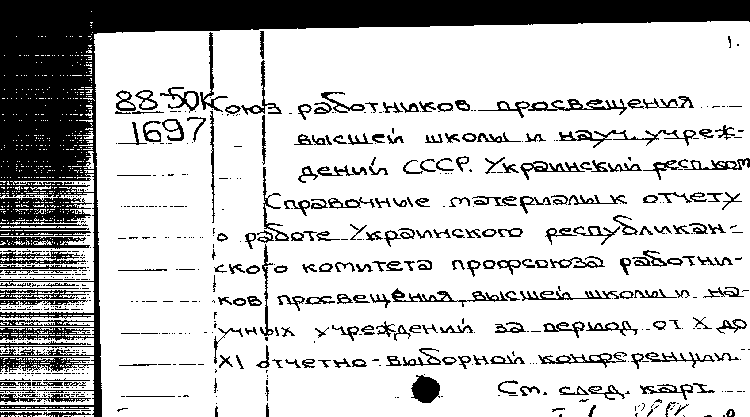 1.
88-50К Союз работников просвещения
1697 высшей школы и науч. учреж-
дений СССР. Украинский респ. ком
Справочные материалы к отчету
о работе Украинского республикан-
ского комитета профсоюза работни-
ков просвещения, высшей школы и на-
учных учреждений за период от X до
XI отчетно-выборной конференции.
См. след. карт.